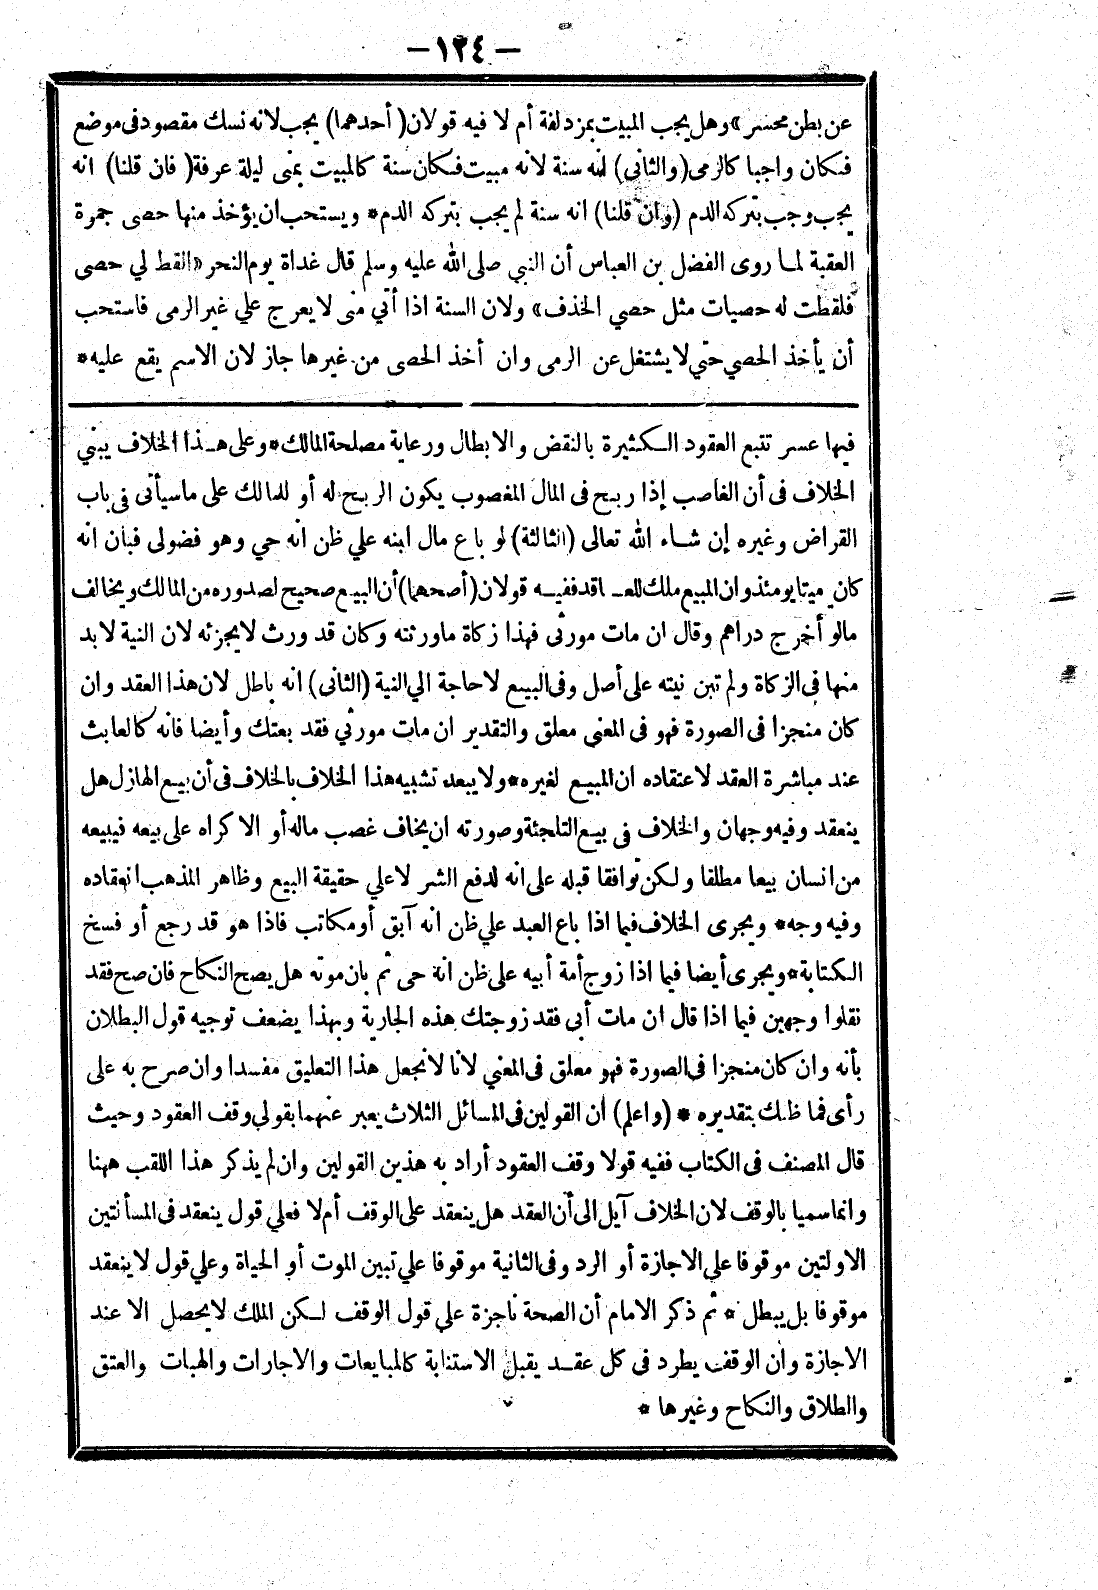 — ١٢٤ —
عن بطن محسر» وهل يجب المبيت بمزدلفة أم لا فيه قولان (أحدهما) يجب لانه نسك مقصود فى موضع
فكان واجبا كالرمى (والثانى) انه سنة لانه مبيت فكان سنة كالمبيت بمنى ليلة عرفة (فان قلنا) انه
يجب وجب بتركه الدم (وان قلنا) انه سنة لم يجب بتركه الدم* ويستحب ان يؤخذ منها حصى جمرة
العقبة لما روى الفضل بن العباس أن النبي صلى الله عليه وسلم قال غداة يوم النحر «القط لي حصى
فلقطت له حصيات مثل حصي الخذف» ولان السنة اذا أتي منى لا يعرج علي غير الرمى فاستحب
أن يأخذ الحصي حتي لا يشتغل عن الرمى وان أخذ الحصى من غيرها جاز لان الاسم يقع عليه*
فيها عسر تتبع العقود الكثيرة بالنقض والابطال ورعاية مصلحة المالك* وعلى هذا الخلاف يبني
الخلاف فى أن الغاصب إذا ربح فى المال المغصوب يكون الربح له أو للمالك على ماسيأتى فى باب
القراض وغيره إن شاء الله تعالى (الثالثة) لو باع مال ابنه علي ظن أنه حي وهو فضولى فبان انه
كان ميتا يومئذ وان المبيع ملك للعاقد ففيه قولان (أصحهما) أن البيع صحيح لصدوره من المالك ويخالف
مالو أخرج دراهم وقال ان مات مورثى فهذا زكاة ماورثته وكان قد ورث لا يجزئه لان النية لابد
منها فى الزكاة ولم تبن نيته على أصل وفى البيع لا حاجة الي النية (الثانى) انه باطل لان هذا العقد وان
كان منجزا فى الصورة فهو فى المعني معلق والتقدير ان مات مورثي فقد بعتك وأيضا فانه كالعابث
عند مباشرة العقد لاعتقاده ان المبيع لغيره* ولا يبعد تشبيه هذا الخلاف بالخلاف فى أن بيع الهازل هل
ينعقد وفيه وجهان والخلاف في بيع التلجئة وصورته ان يخاف غصب ماله أو الاكراه على بيعه فيبيعه
من انسان بيعا مطلقا ولكن توافقا قبله على انه لدفع الشر لا علي حقيقة البيع وظاهر المذهب انعقاده
وفيه وجه* ويجرى الخلاف فيما اذا باع العبد علي ظن انه آبق أو مكاتب فاذا هو قد رجع أو فسخ
الكتابة* ويجرى أيضا فيما اذا زوج أمة أبيه على ظن انه حى ثم بان موته هل يصح النكاح فان صح فقد
نقلوا وجهين فيما اذا قال ان مات أبي فقد زوجتك هذه الجارية وبهذا يضعف توجيه قول البطلان
بأنه وان كان منجزا فى الصورة فهو معلق فى المعني لانا لا نجعل هذا التعليق مفسدا وان صرح به على
رأى فما ظنك بتقديره * (واعلم) أن القولين فى المسائل الثلاث يعبر عنهما بقولي وقف العقود وحيث
قال المصنف فى الكتاب ففيه قولا وقف العقود أراد به هذين القولين وان لم يذكر هذا اللقب ههنا
وانما سميا بالوقف لان الخلاف آيل الى أن العقد هل ينعقد على الوقف أم لا فعلي قول ينعقد فى المسألتين
الاولتين موقوفا علي الاجازة أو الرد وفى الثانية موقوفا علي تبين الموت أو الحياة وعلي قول لا ينعقد
موقوفا بل يبطل * ثم ذكر الامام أن الصحة ناجزة علي قول الوقف لكن الملك لا يحصل الا عند
الاجازة وان الوقف يطرد فى كل عقد يقبل الاستنابة كالمبايعات والاجارات والهبات والعتق
والطلاق والنكاح وغيرها *